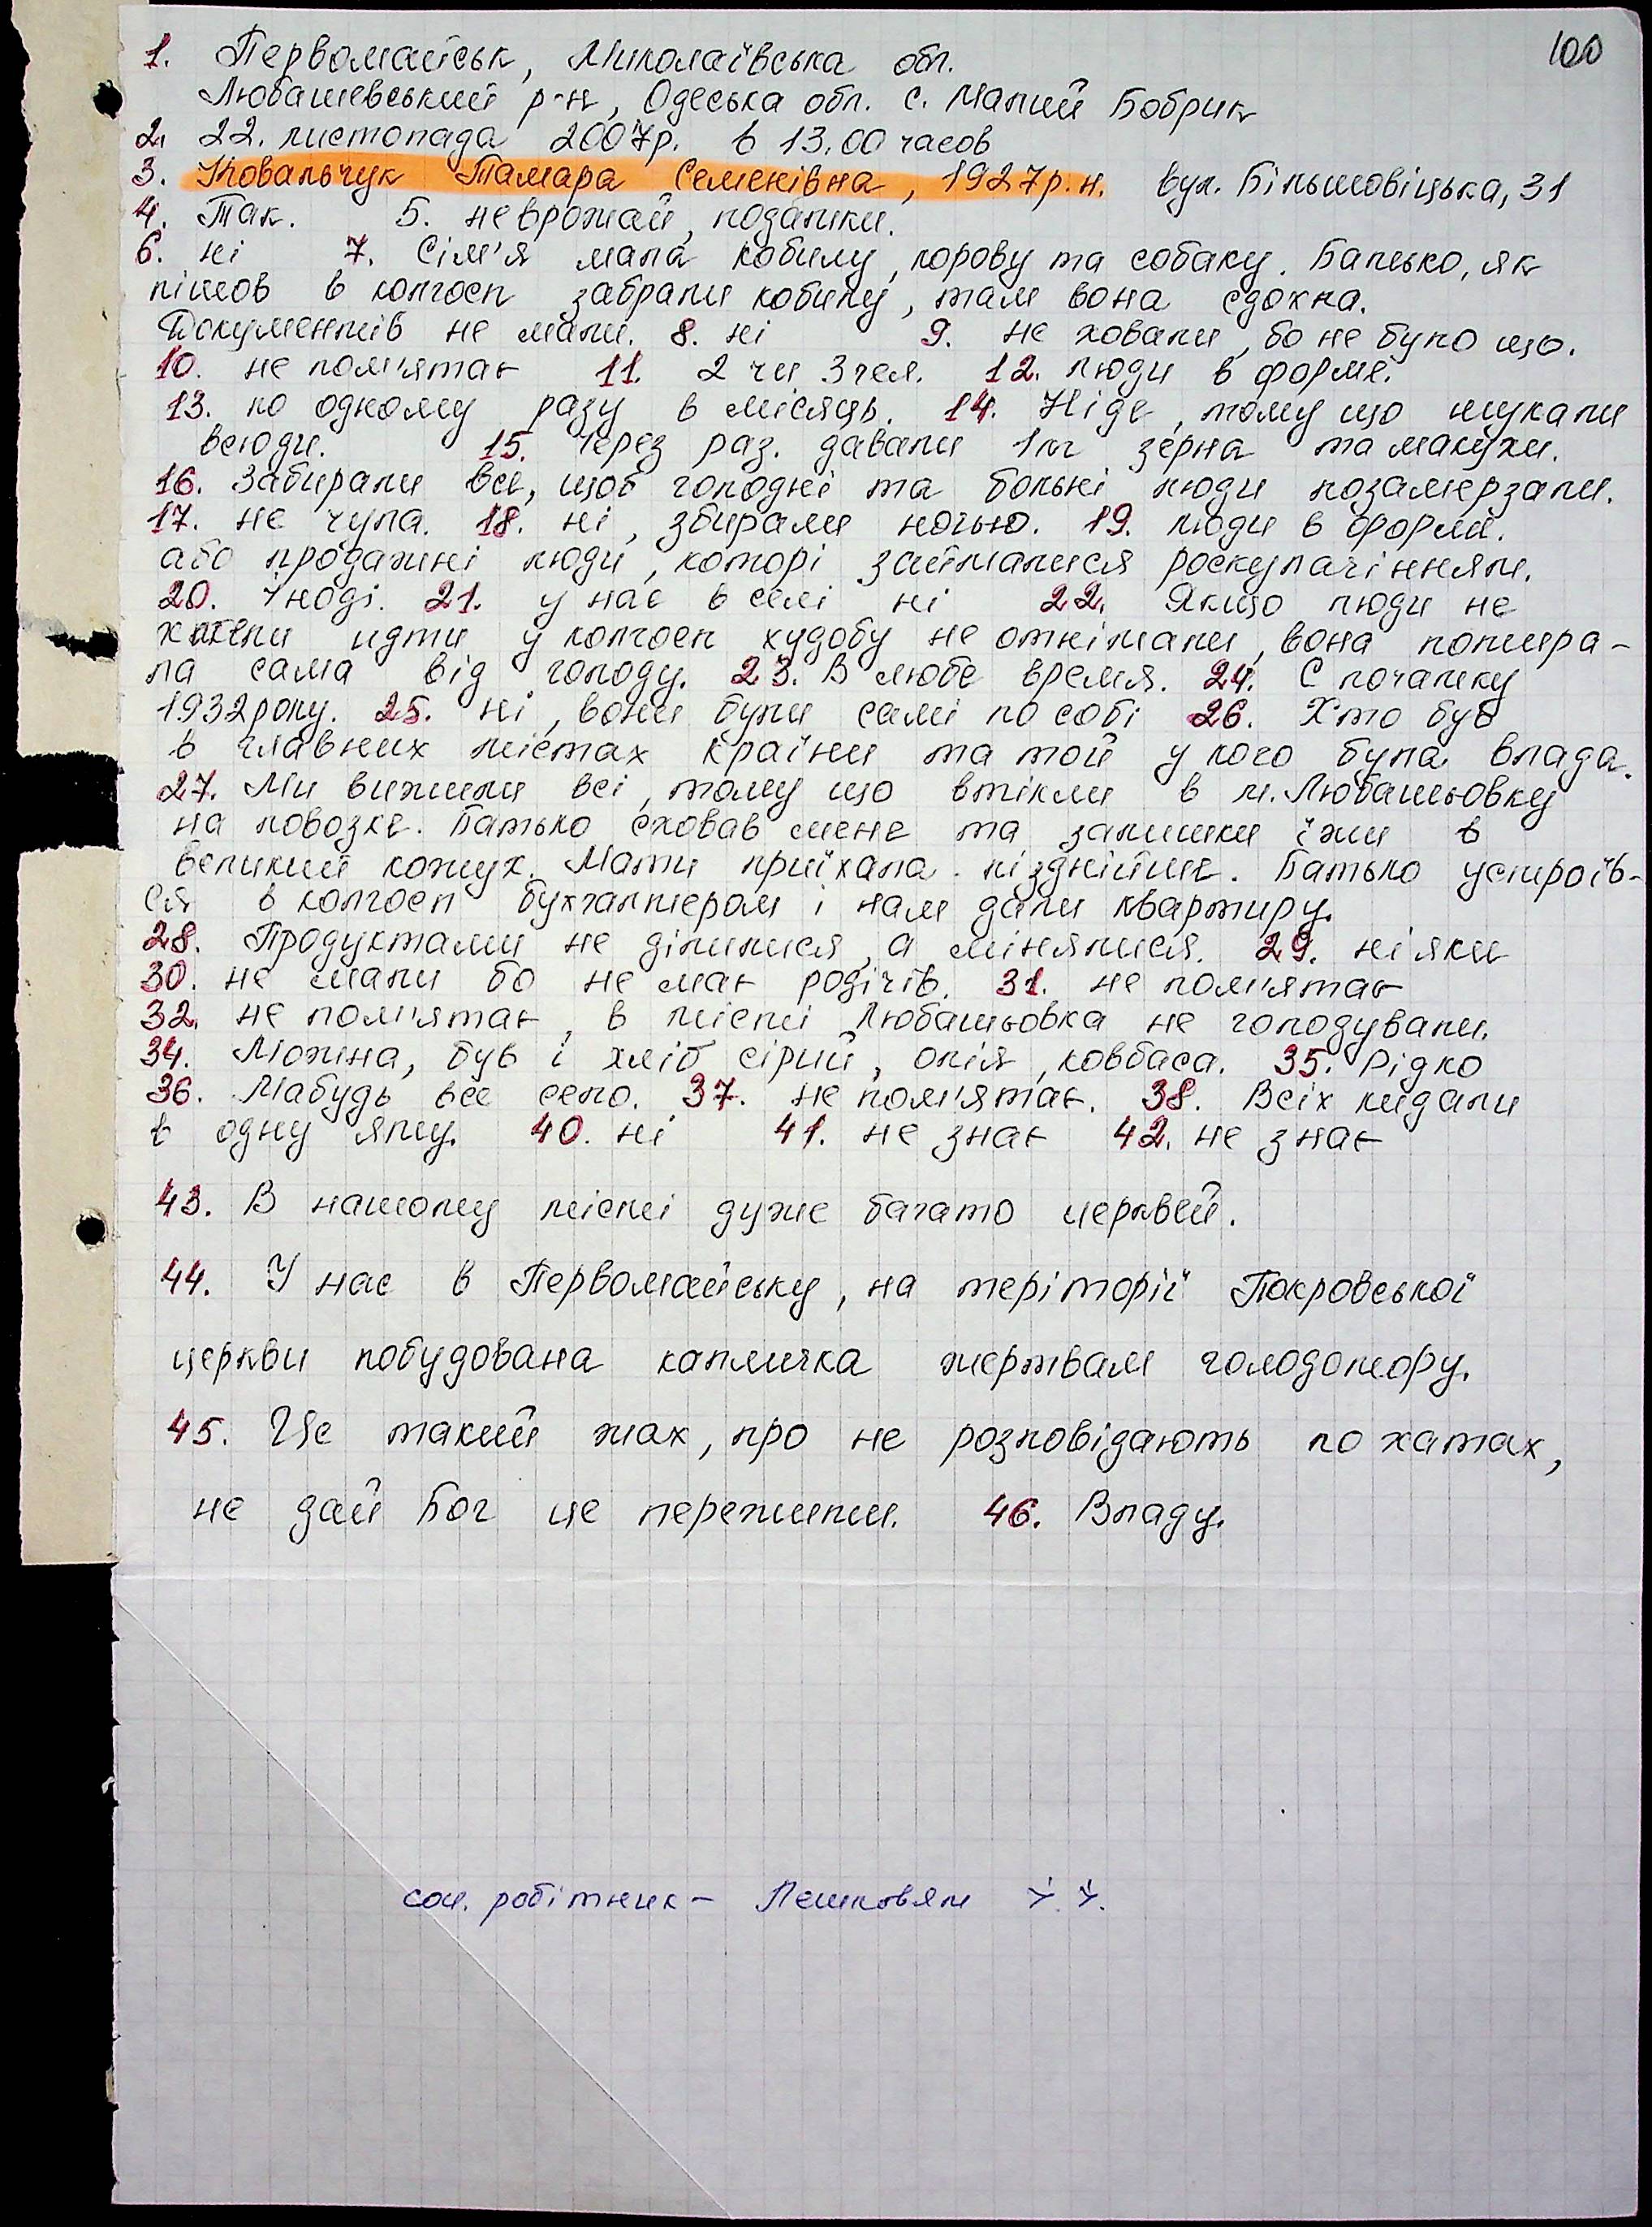 100
1. Первомайськ, Миколаївська обл.
Любашевський р-н, Одеська обл. с. Малий Бобрик
2. 22. листопада 2007р. в 13.00 часов
3. Ковальчук Тамара Семенівна, 1927р.н. вул. Більшовіцька, 31
4. Так. 5. неврожай, податки.
6. ні 7. Сім'я мала кобилу, корову та собаку. Батько, як
пішов в колгосп забрали кобилу, там вона сдохла.
Документів не мали. 8. ні 9. не ховали, бо не було що.
10. не пом'ятає 11. 2 чи 3 чел. 12. люди в форме.
13. по одному разу в місяць. 14. Ніде, тому що шукали
всюди. 15. Через раз. давали 1 кг зерна та макухи.
16. Забирали все, щоб голодні та больні люди позамерзали.
17. не чула. 18. ні, збирали ночью. 19. люди в формі.
або продажні люди, которі займалися роскулачінням.
20. Іноді. 21. у нас в селі ні 22. Якщо люди не
хотели идти у колгосп худобу не отнімали, вона помира-
ла сама від голоду. 23. В любе время. 24. С початку
1932року. 25. ні, вони були самі по собі 26. Хто був
в главних містах країни та той у кого була влада.
27. Ми вижили всі, тому що втікли в м. Любашьовку
на повозке. Батько сховав мене та залишки їжи в
великий кожух. Мати приїхала пізднійше. Батько устроїв-
ся в колгосп бухгалтером і нам дали квартиру.
28. Продуктами не ділилися, а мінялися. 29. ніяки
30. не мали бо не має родічів. 31. не пом'ятає
32. не пом'ятає, в місті Любашьовка не голодували.
34. Можна, був і хліб сірий, олія, ковбаса. 35. Рідко
36. Мабудь все село. 37. не пом'ятає. 38. Всіх кидали
в одну яму. 40. ні 41. не знає 42. не знає
43. В нашому місті дуже багато церквей.
44. У нас в Первомайську, на теріторії Покровської
церкви побудована капличка жертвам голодомору.
45. Це такий жах, про не розповідають по хатах,
не дай Бог це пережити. 46. Владу.
соц. робітник - Лешковям